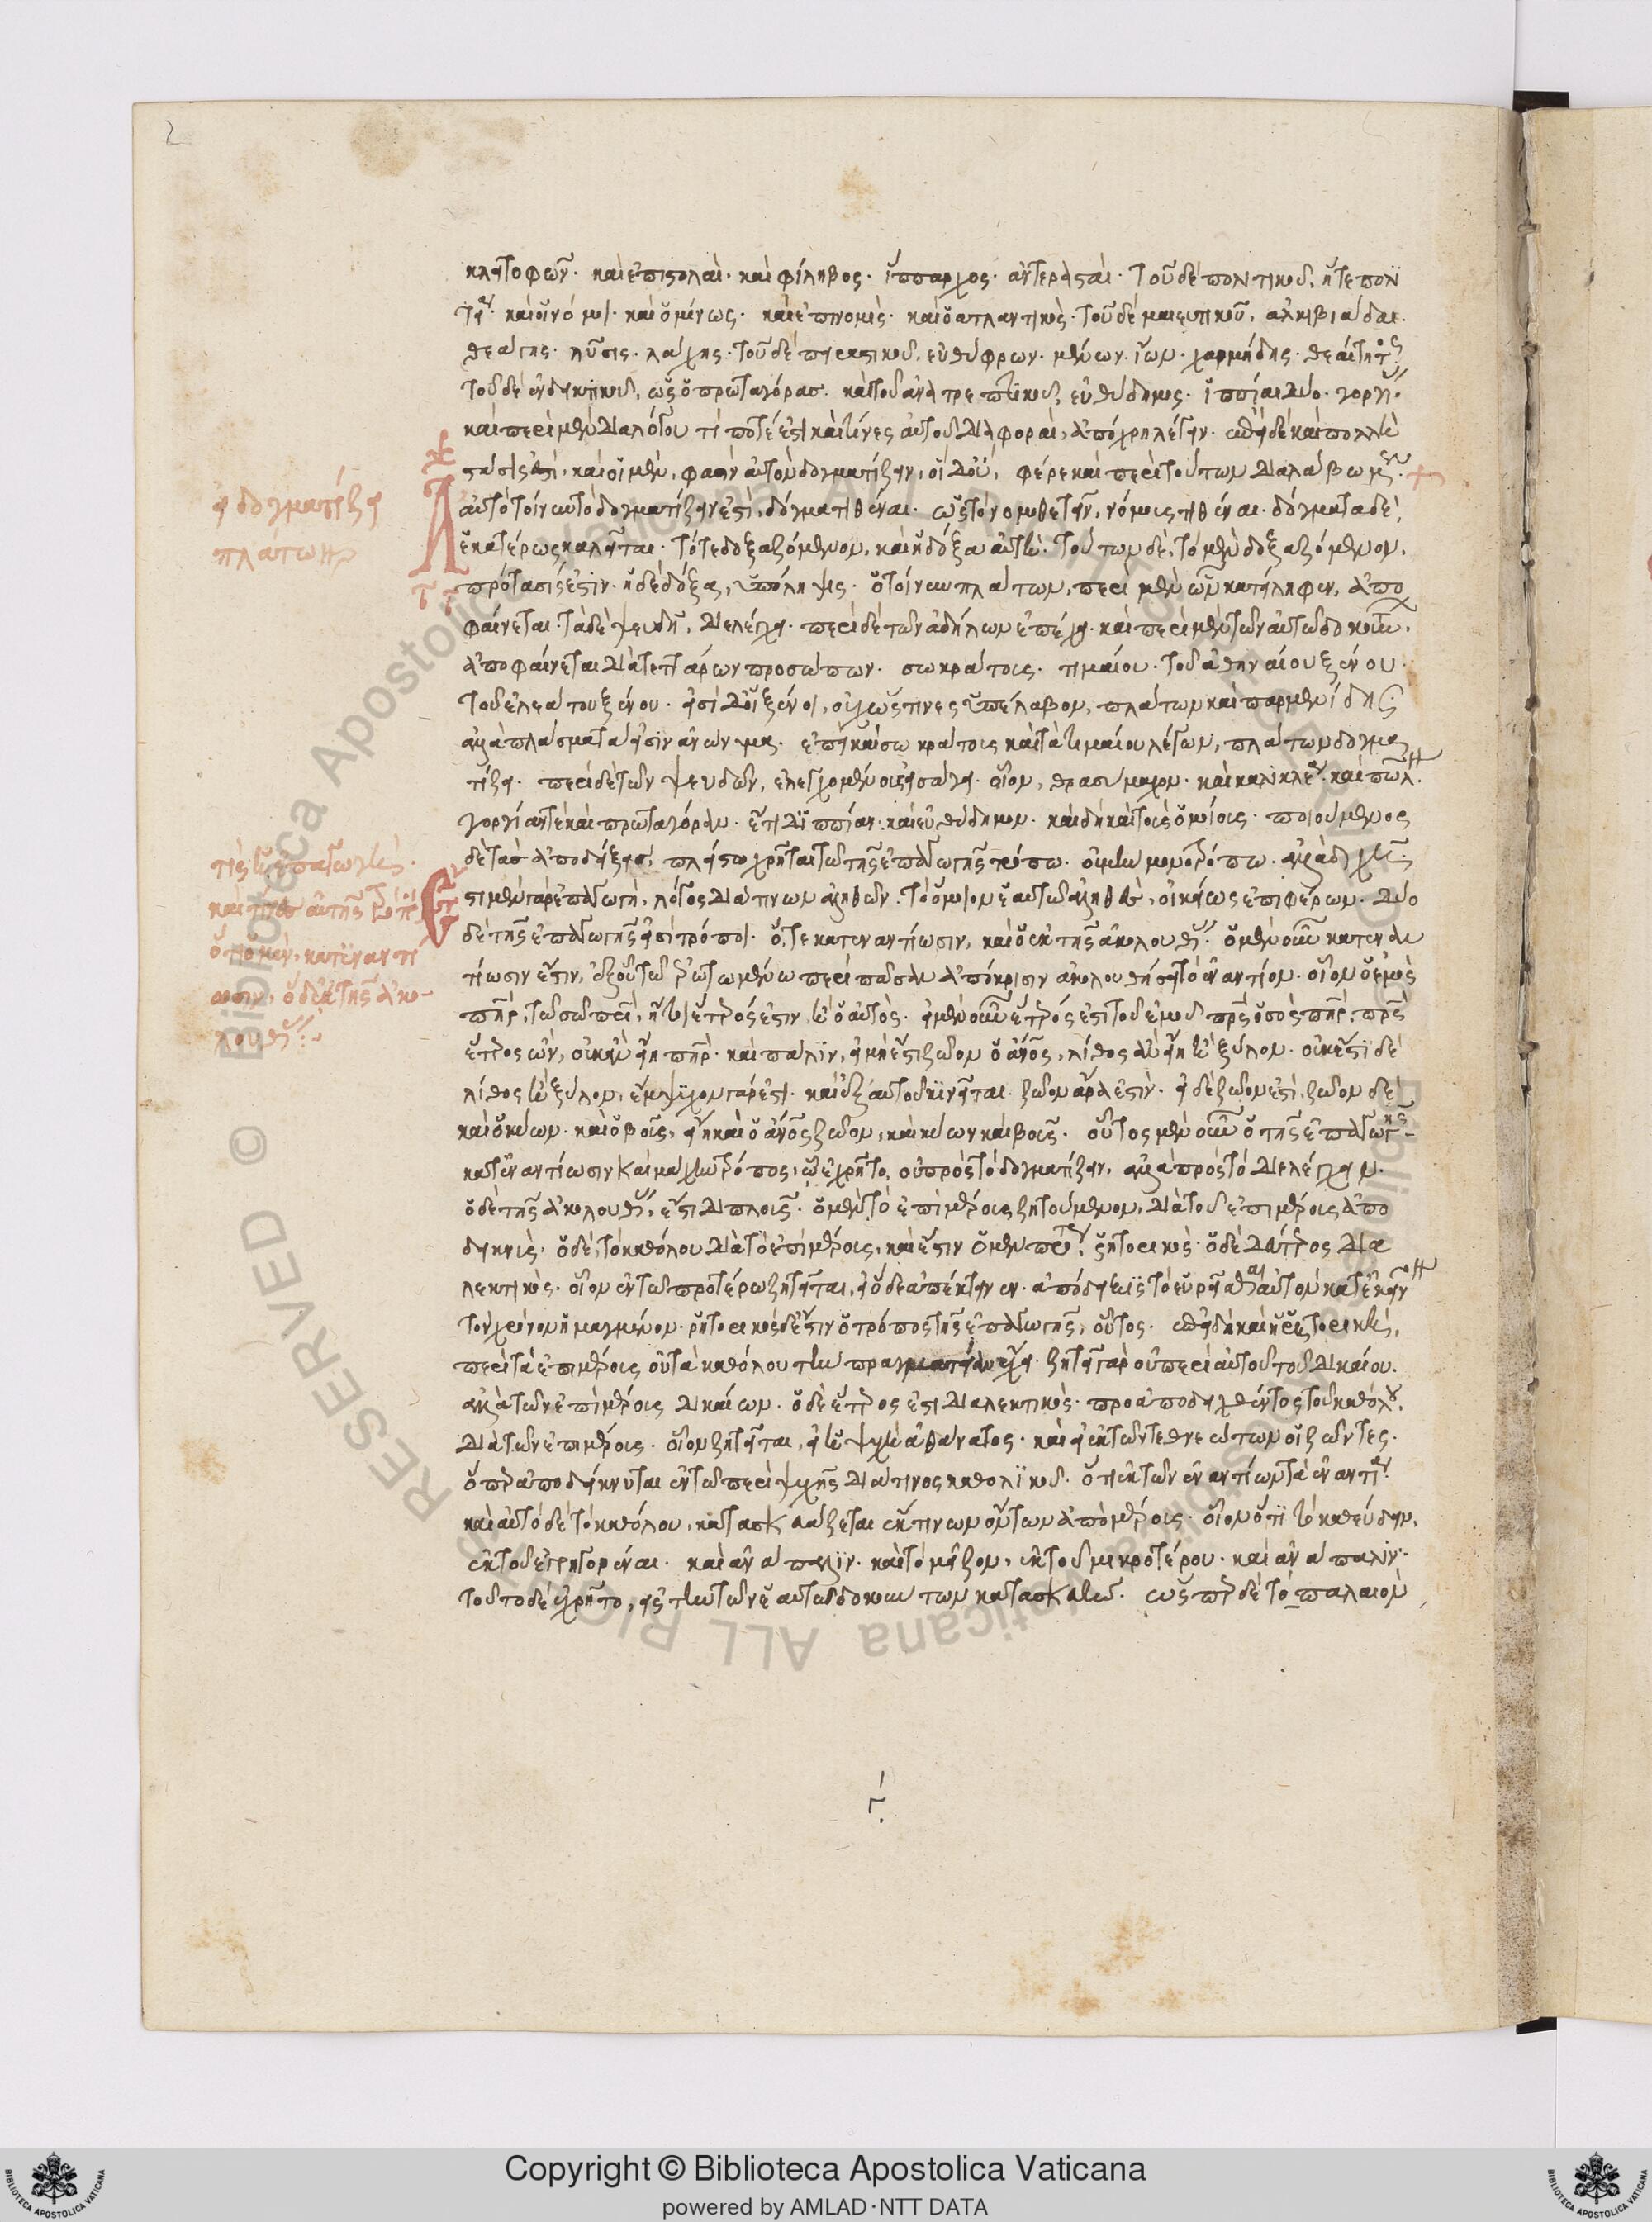 2
κλειτοφῶν. καὶ ἐπιστολαὶ. καὶ φίληβος. ἵππαρχος. ἀντερασταί. τοῦ δὲ πολιτικοῦ, ἥτε πολι
τεία. καὶ οἱ νόμοι. καὶ ὁ μίνως. καὶ ἐπινομὶς. καὶ ὁ ἀτλαντικὸς. τοῦ δὲ μαιευτικοῦ, ἀλκιβιάδαι.
θεάγης. λύσις. λάχης. τοῦ δὲ πειραστικοῦ, εὐθύφρων. μένων. ἴων. χαρμίδης. θεαίτητος
τοῦ δὲ ἐνδεικτικοῦ, ὡς ὁ πρωταγόρας. καὶ τοῦ ἀνατρεπτικοῦ, εὐθύδημος. ἱππίαι δύο. γοργίας.
καὶ περὶ μὲν διαλόγου τί ποτέ ἐστι καὶ τίνες αὐτοῦ διαφοραὶ, ἀπόχρη λέγειν. ἐπεὶ δὲ καὶ πολλὴ
στάσις ἐστὶ, καὶ οἱ μὲν, φασὶν αὐτὸν δογματίζειν, οἱ δ' οὔ, φέρε καὶ περὶ τούτων διαλάβωμεν.
εἰ δογματίζει
πλάτων
αὐτὸ τοίνυν τὸ δογματίζειν ἐστὶ, δόγματα τιθέναι. ὡς τὸ νομοθετεῖν, νόμους τιθέναι. δόγματα δὲ,
ἑκατέρως καλεῖται. τό τε δοξαζόμενον, καὶ ἡ δόξα αὐτὴ. τούτων δὲ, τὸ μὲν δοξαζόμενον,
πρότασίς ἐστιν. ἡ δὲ δόξα, ὑπόληψις. ὁ τοίνυν πλάτων, περὶ μὲν ὧν κατείληφεν, ἀπο
φαίνεται. τὰ δὲ ψευδῆ, διελέγχει. περὶ δὲ τῶν ἀδήλων ἐπέχει. καὶ περὶ μὲν τῶν αὐτῷ δοκούντων,
ἀποφαίνεται διὰ τεττάρων προσώπων. σωκράτους. τιμαίου. τοῦ ἀθηναίου ξένου.
τοῦ ἐλεάτου ξένου. εἰσὶ δ' οἱ ξένοι, οὐχ ὥς τινες ὑπέλαβον, πλάτων καὶ παρμενίδης
ἀλλὰ πλάσματα εἰσὶν ἀνώνυμα. ἐπεὶ καὶ σωκράτους καὶ τὰ τιμαίου λέγων, πλάτων δογμα
τίζει. περὶ δὲ τῶν ψευδῶν, ἐλεγχομένους εἰσάγει. οἷον, θρασύμαχον. καὶ καλικλέα. καὶ πῶλον.
γοργίαν τε καὶ πρωταγόραν. ἔτι δ' ἱππίαν. καὶ εὐθύδημον. καὶ δὴ καὶ τοὺς ὁμοίους. ποιούμενος
τίς ἡ ἐπαγωγή.
καὶ τίνες αὐτῆς τρόποι
ὅτι ὁ μὲν, κατεναντί
ωσιν, ὁ δὲ ἐκ τῆς ἀκο-
λουθίας.
δὲ τὰς ἀποδείξεις, πλείστῳ χρῆται τῷ τῆς ἐπαγωγῆς τρόπῳ. οὐ μὴν μονοτρόπῳ. ἀλλὰ διχῆ.
ἔστι μὲν γὰρ ἐπαγωγὴ, λόγος διά τινων ἀληθῶν. τὸ ὅμοιον ἑαυτῷ ἀληθὲς, οἰκείως ἐπιφέρων. δύο
δὲ τῆς ἐπαγωγῆς εἰσὶ τρόποι. ὅ, τε κατεναντίωσιν, καὶ ὁ ἐκ τῆς ἀκολουθίας. ὁ μὲν οὖν κατεναν
τίωσιν ἔστιν, ἐξ οὗ τῷ ἐρωτωμένῳ περὶ πᾶσαν ἀπόκρισιν ἀκολουθήσει τὸ ἐναντίον. οἷον ὁ ἐμὸς
πατὴρ, τῷ σῷ πατρὶ, ἤτοι ἕτερός ἐστιν, ἢ ὁ αὐτὸς. εἰ μὲν οὖν ἕτερός ἐστι τοῦ ἐμοῦ πατρὸς ὁ σὸς πατὴρ, πατρὸς
ἕτερος ὢν, οὐκ ἂν εἴη πατὴρ. καὶ πάλιν, εἰ μὴ ἔστι ζῷον ὁ ἄνθρωπος, λίθος ἂν εἴη ἢ ξύλον. οὐκ ἔστι δὲ
λίθος ἢ ξύλον, ἔμψυχον γάρ ἐστι. καὶ ἐξ αὑτοῦ κινεῖται. ζῷον ἄρα ἐστὶν. εἰ δὲ ζῷον ἐστὶ, ζῷον δὲ
καὶ ὁ κύων. καὶ ὁ βοῦς, εἴη καὶ ὁ ἄνθρωπος ζῷον, καὶ κύων καὶ βοῦς. οὗτος μὲν οὖν ὁ τῆς ἐπαγωγῆς
κατεναντίωσιν καὶ μάχην τρόπος, ᾧ ἐχρῆτο, οὐ πρὸς τὸ δογματίζειν, ἀλλὰ πρὸς τὸ διελέγχειν.
ὁ δὲ τῆς ἀκολουθίας, ἔστι διπλοῦς. ὁ μὲν τὸ ἐπὶ μέρους ζητούμενον, διὰ τοῦ ἐπιμέρους ἀπο
δεικνὺς. ὁ δὲ, τὸ καθόλου διὰ τὸ ἐπὶ μέρους, καὶ ἔστιν ὁ μὲν πρότερος, ῥητορικὸς. ὁ δὲ δεύτερος δια
λεκτικὸς. οἷον ἐν τῷ προτέρῳ ζητεῖται, εἰ ὅδε ἀπέκτεινεν. ἀπόδειξις τὸ εὑρεῖσθαι αὐτὸν κατ' ἐκεῖνον
τὸν χρόνον ᾑμαγμένον. ῥητορικὸς δέ ἐστιν ὁ τρόπος τῆς ἐπαγωγῆς, οὗτος. ἐπειδὴ καὶ ἡ ῥητορικὴ,
περὶ τὰ ἐπιμέρους οὐ τὰ καθόλου τὴν πραγματείαν ἔχει. ζητεῖ γὰρ οὐ περὶ αὐτοῦ τοῦ δικαίου.
ἀλλὰ τῶν ἐπὶ μέρους δικαίων. ὁ δὲ ἕτερος ἐστι διαλεκτικὸς. προαποδειχθέντος τοῦ καθόλου,
διὰ τῶν ἐπιμέρους. οἷον ζητεῖται, εἰ ἡ ψυχὴ ἀθάνατος. καὶ εἰ ἐκ τῶν τεθνεώτων οἱ ζῶντες.
ὅπερ ἀποδείκνυται ἐν τῷ περὶ ψυχῆς διά τινος καθολικοῦ. ὅτι ἐκ τῶν ἐναντίων τὰ ἐναντία.
καὶ αὐτὸ δὲ τὸ καθόλου, κατασκευάζεται ἔκ τινων ὄντων ἀπὸ μέρους. οἷον ὅτι τὸ καθεύδειν,
ἐκ τοῦ ἐγρηγορέναι. καὶ ἀνάπαλιν. καὶ τὸ μεῖζον, ἐκ τοῦ μικροτέρου. καὶ ἀνάπαλιν.
τούτο δὲ ἐχρῆτο, εἰς τὴν τῶν ἑαυτῷ δοκούντων κατασκευὴν. ὥσπερ δὲ τὸ παλαιὸν